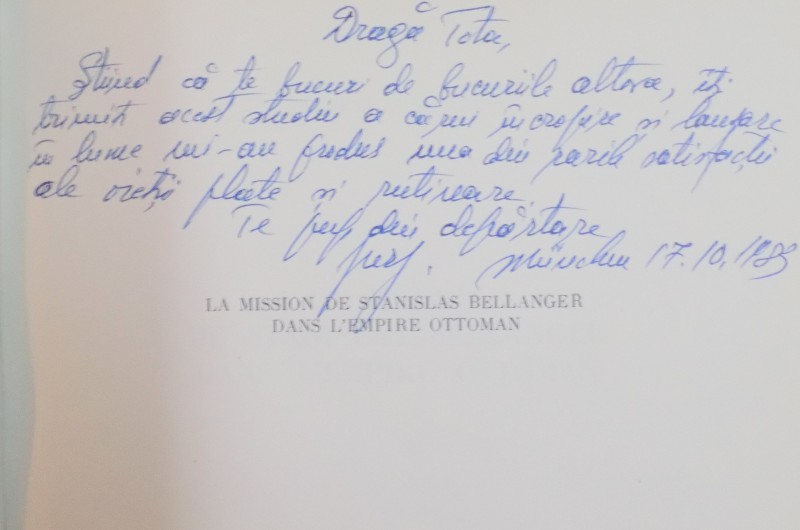 Dragă Tota,
Știind că te bucuri de bucuriile altora, îți
trimit acest studiu a cărui încropire și lansare
în lume mi-au produs una din rarile satisfacții
ale vieții plate și rutinare.
Te pup din depărtare
München 17.10.1985
LA MISSION DE STANISLAS BELLANGER
DANS L'EMPIRE OTTOMAN